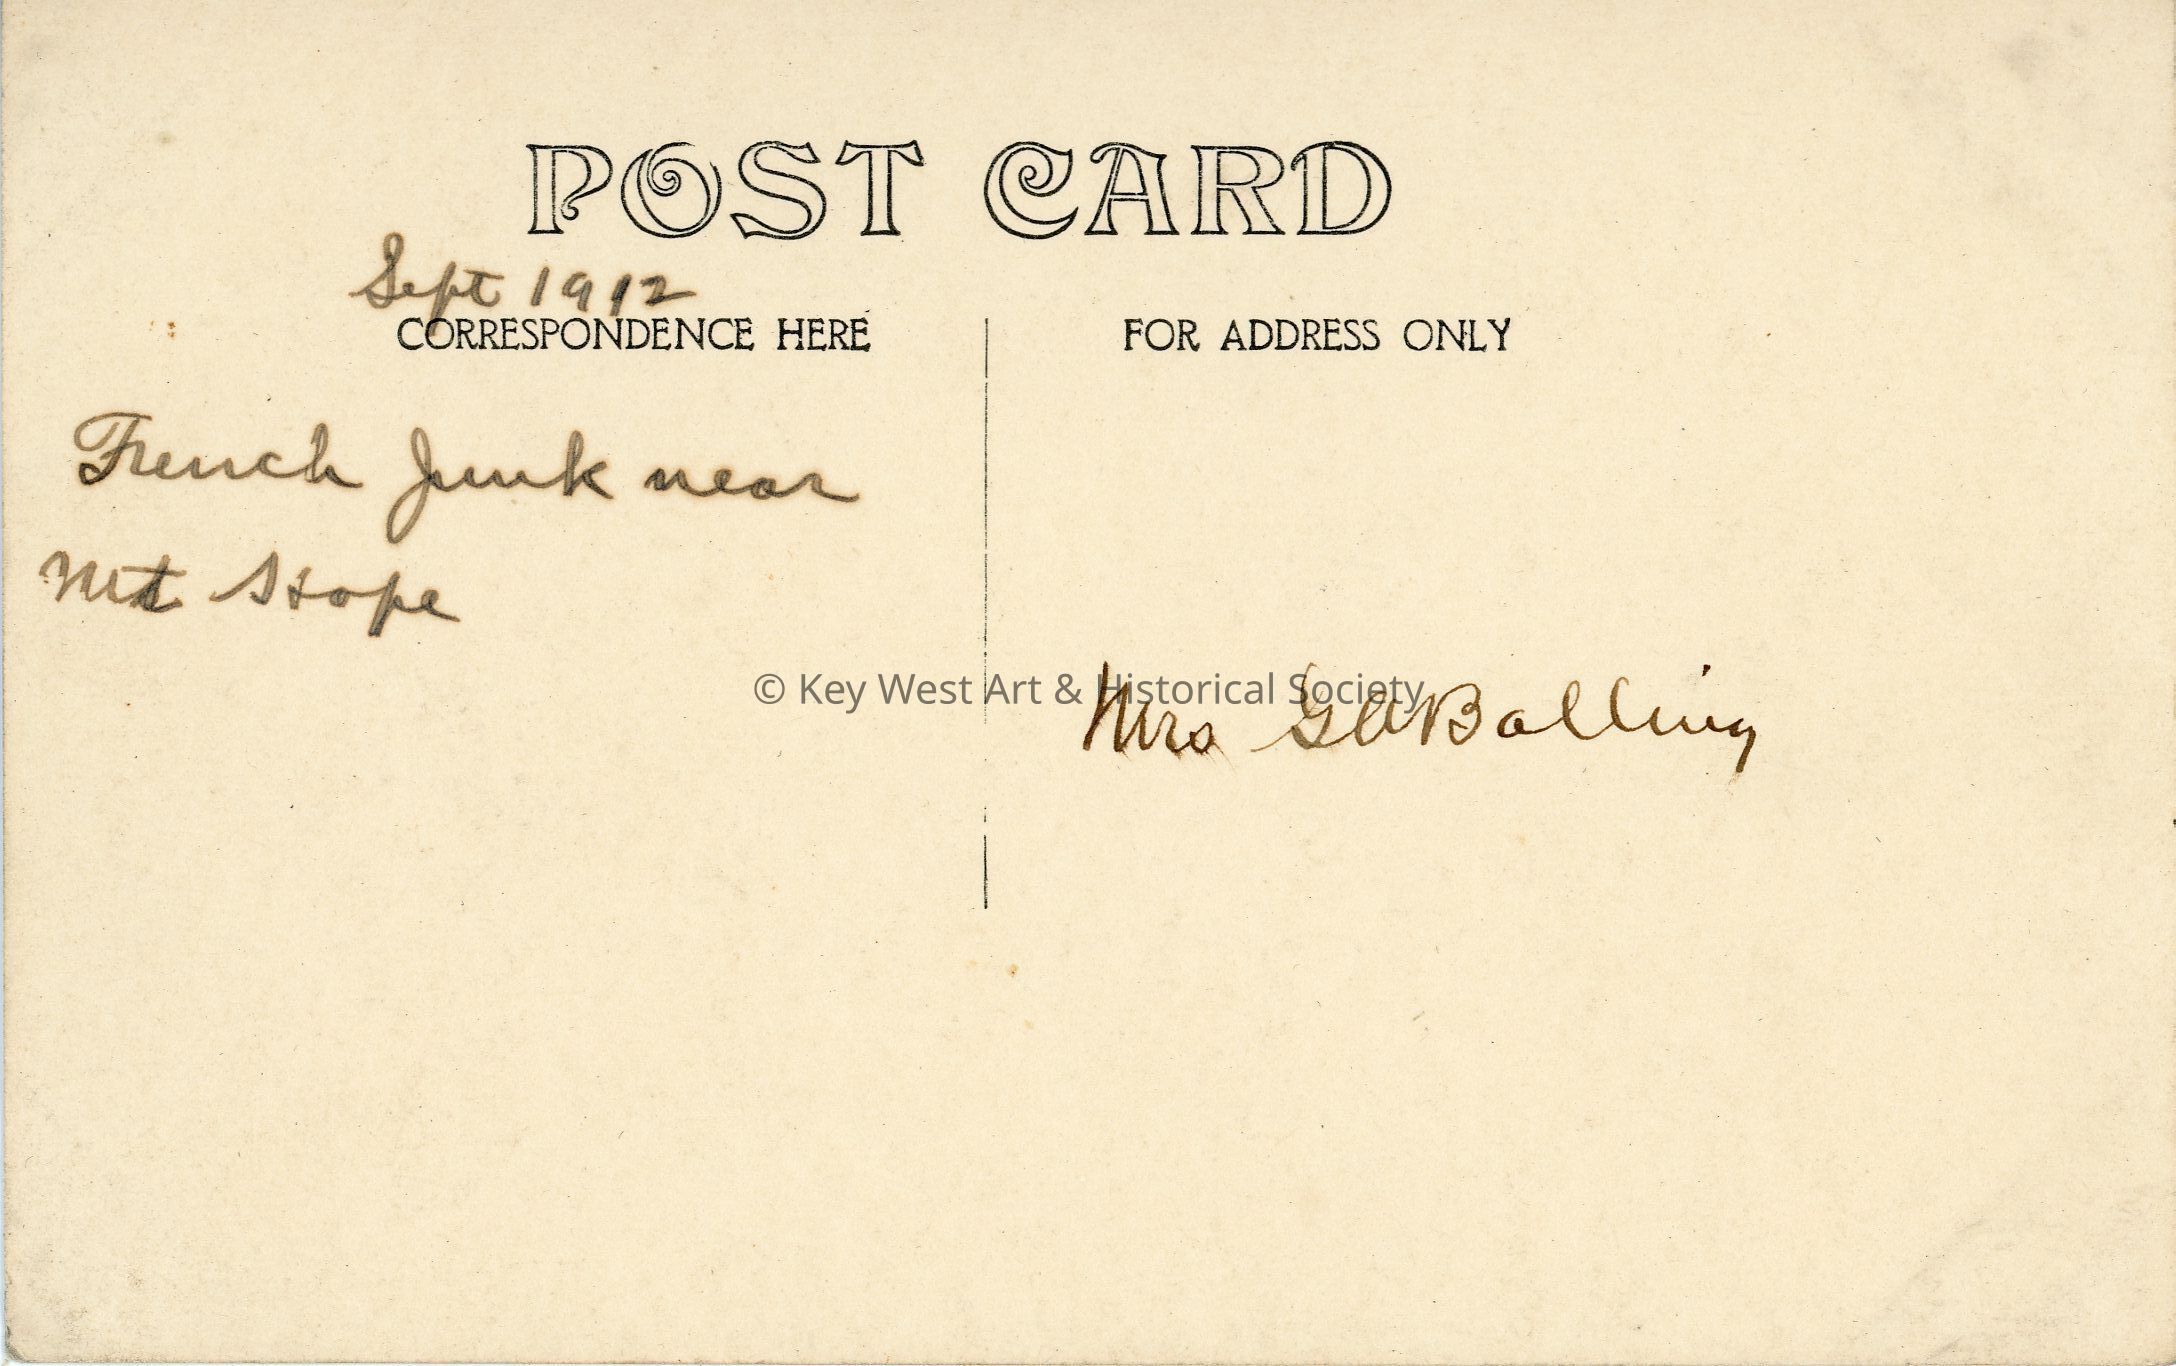 POST CARD
Sept 1912
CORRESPONDENCE HERE
FOR ADDRESS ONLY
French Junk near
Mt Hope
© Key West Art & Historical Society
Mrs G A Bolling